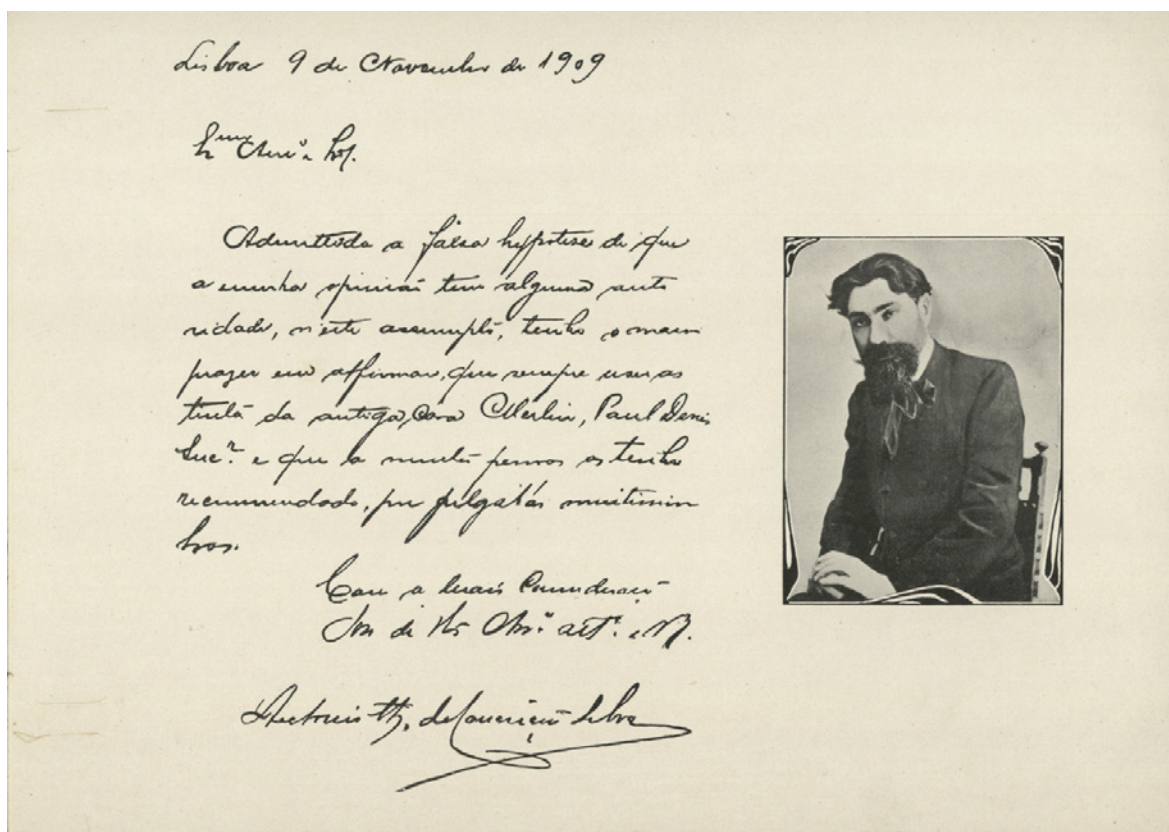 Lisboa 9 de Novembro de 1909
Admittida a falsa hypothese de que
a minha opinião tem alguma auto
ridade, n'este assumpto, tenho o maior
prazer em affirmar, que sempre usei as
tintas da antiga Casa Merlin, Paul Denis
Sucr. e que a muitas pessoas as tenho
recommendado, por julgal-as muitissimo
boas.
Com a mais Consideração
Sou de
Antonio Th. da Conceição Silva